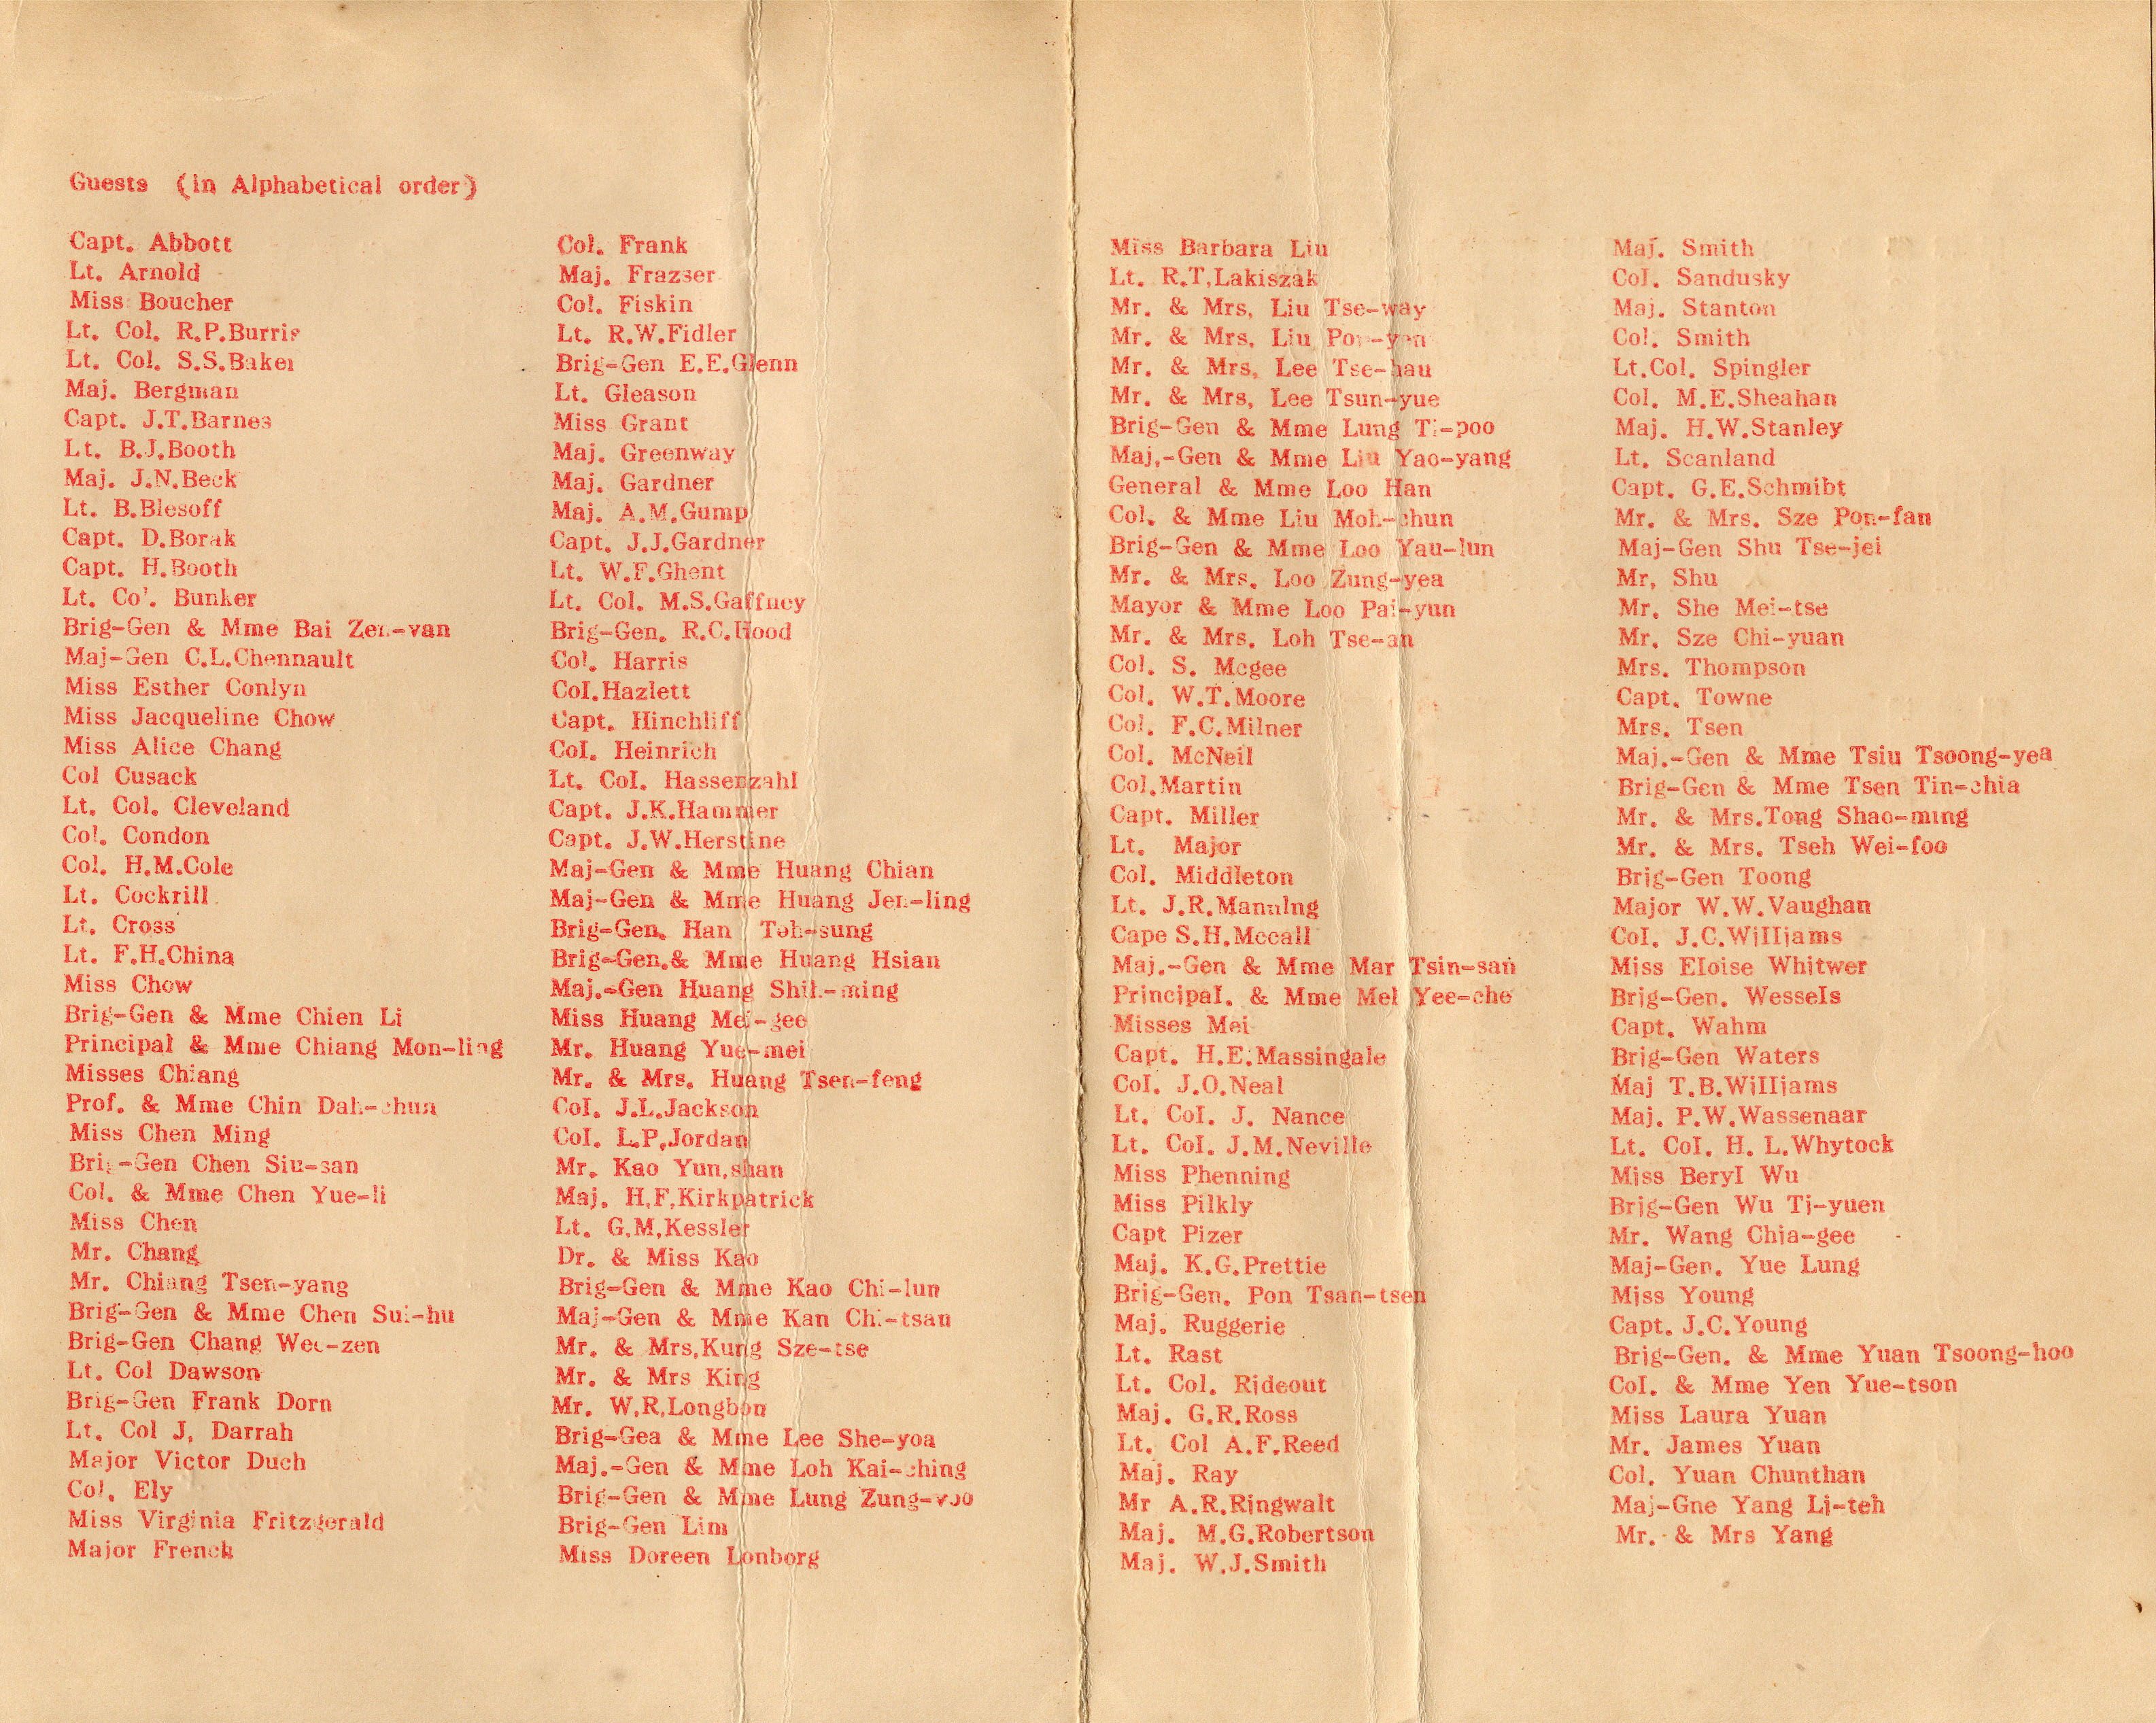 Guests (in Alphabetical order)
Capt. Abbott
Lt. Arnold
Miss Boucher
Lt. Col. R.P.Burris
Lt. Col. S.S.Baker
Maj. Bergman
Capt. J.T.Barnes
Lt. B.J.Booth
Maj. J.N.Beck
Lt. B.Blesoff
Capt. D.Borak
Capt. H.Booth
Lt. Col. Bunker
Brig-Gen & Mme Bai Zen-van
Maj-Gen C.L.Chennault
Miss Esther Conlyn
Miss Jacqueline Chow
Miss Alice Chang
Col Cusack
Lt. Col. Cleveland
Col. Condon
Col. H.M.Cole
Lt. Cockrill
Lt. Cross
Lt. F.H.China
Miss Chow
Brig-Gen & Mme Chien Li
Principal & Mme Chiang Mon-ling
Misses Chiang
Prof. & Mme Chin Dah-chun
Miss Chen Ming
Brig-Gen Chen Siu-san
Col. & Mme Chen Yue-li
Miss Chen
Mr. Chang
Mr. Chiang Tsen-yang
Brig-Gen & Mme Chen Sui-hu
Brig-Gen Chang Wee-zen
Lt. Col Dawson
Brig-Gen Frank Dorn
Lt. Col J, Darrah
Major Victor Duch
Col. Ely
Miss Virginia Fritzgerald
Major French
Col. Frank
Maj. Frazser
Col. Fiskin
Lt. R.W.Fidler
Brig-Gen E.E.Glenn
Lt. Gleason
Miss Grant
Maj. Greenway
Maj. Gardner
Maj. A.M.Gump
Capt. J.J.Gardner
Lt. W.F.Ghent
Lt. Col. M.S.Gaffney
Brig-Gen. R.C.Hood
Col. Harris
Col.Hazlett
Capt. Hinchliff
Col. Heinrich
Lt. Col. Hassenzahl
Capt. J.K.Hammer
Capt. J.W.Herstine
Maj-Gen & Mme Huang Chian
Maj-Gen & Mme Huang Jen-ling
Brig-Gen. Han Teh-sung
Brig-Gen.& Mme Huang Hsian
Maj.-Gen Huang Shih-ming
Miss Huang Mei-gee
Mr. Huang Yue-mei
Mr. & Mrs. Huang Tsen-feng
Col. J.L.Jackson
Col. L.P.Jordan
Mr. Kao Yun,shan
Maj. H,F,Kirkpatrick
Lt. G,M,Kessler
Dr. & Miss Kao
Brig-Gen & Mme Kao Chi-lun
Maj-Gen & Mme Kan Chi-tsan
Mr. & Mrs,Kung Sze-tse
Mr. & Mrs King
Mr. W,R,Longbon
Brig-Gea & Mme Lee She-yoa
Maj.-Gen & Mme Loh Kai-ching
Brig-Gen & Mme Lung Zung-voo
Brig-Gen Lim
Miss Doreen Lonborg
Miss Barbara Liu
Lt. R.T,Lakiszak
Mr. & Mrs, Liu Tse-way
Mr. & Mrs, Liu
Mr. & Mrs, Lee Tse-hau
Mr. & Mrs, Lee Tsun-yue
Brig-Gen & Mme Lung Ti-poo
Maj,-Gen & Mme Liu Yao-yang
General & Mme Loo Han
Col. & Mme Liu Moh-chun
Brig-Gen & Mme Loo Yau-lun
Mr. & Mrs. Loo Zung-yea
Mayor & Mme Loo Pai-yun
Mr. & Mrs. Loh Tse-an
Col. S. Mcgee
Col. W.T.Moore
Col. F.C.Milner
Col. McNeil
Col.Martin
Capt. Miller
Lt. Major
Col. Middleton
Lt. J.R.Mannlng
Cape S.H.Mccall
Maj.-Gen & Mme Mar Tsin-san
Principal. & Mme Mel Yee-che
Misses Mei
Capt. H.E.Massingale
Col. J.O.Neal
Lt. Col. J. Nance
Lt. Col. J.M.Neville
Miss Phenning
Miss Pilkly
Capt Pizer
Maj. K.G.Prettie
Brig-Gen. Pon Tsan-tsen
Maj. Ruggerie
Lt. Rast
Lt. Col. Rideout
Maj. G.R.Ross
Lt. Col A.F.Reed
Maj. Ray
Mr A.R.Ringwalt
Maj. M.G.Robertson
Maj. W.J.Smith
Maj. Smith
Col. Sandusky
Maj. Stanton
Col. Smith
Lt.Col. Spingler
Col. M.E.Sheahan
Maj. H.W.Stanley
Lt. Scanland
Capt. G.E.Schmibt
Mr. & Mrs. Sze Pon-fan
Maj-Gen Shu Tse-jei
Mr, Shu
Mr. She Mei-tse
Mr. Sze Chi-yuan
Mrs. Thompson
Capt. Towne
Mrs. Tsen
Maj.-Gen & Mme Tsiu Tsoong-yea
Brig-Gen & Mme Tsen Tin-chia
Mr. & Mrs.Tong Shao-ming
Mr. & Mrs. Tseh Wei-foo
Brig-Gen Toong
Major W.W.Vaughan
Col. J.C.Williams
Miss Eloise Whitwer
Brig-Gen. Wessels
Capt. Wahm
Brig-Gen Waters
Maj T.B.Williams
Maj. P.W.Wassenaar
Lt. Col. H. L.Whytock
Miss Beryl Wu
Brig-Gen Wu Ti-yuen
Mr. Wang Chia-gee
Maj-Gen. Yue Lung
Miss Young
Capt. J.C.Young
Brig-Gen. & Mme Yuan Tsoong-hoo
Col. & Mme Yen Yue-tson
Miss Laura Yuan
Mr. James Yuan
Col. Yuan Chunthan
Maj-Gne Yang Li-teh
Mr. & Mrs Yang